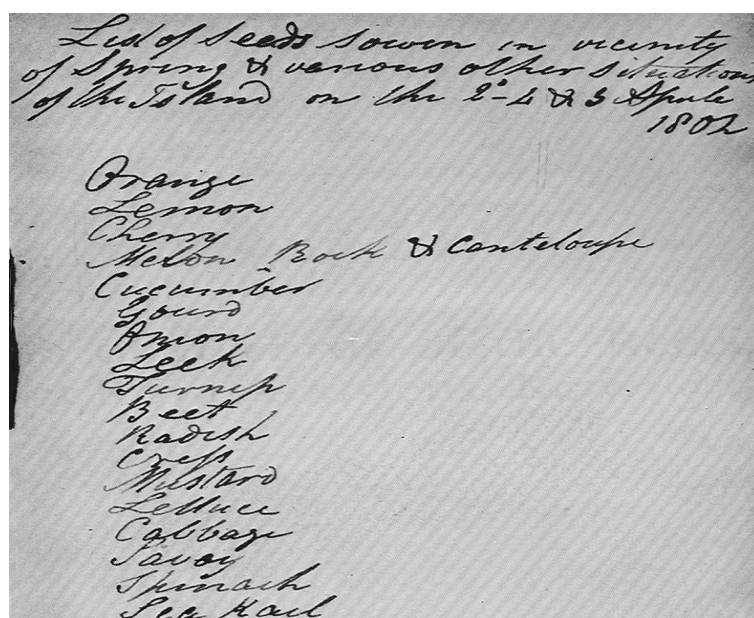 List of Seeds Sown in vicinity
of Spring & various other Situations
of the Island on the 2d 4 & 5 Aprile
1802
Orange
Lemon
Cherry
Melon Rock & Canteloupe
Cucumber
Gourd
Onion
Leek
Turnip
Beet
Radish
Cress
Mustard
Lettuce
Cabbage
Savoy
Spinach
Sea Kail